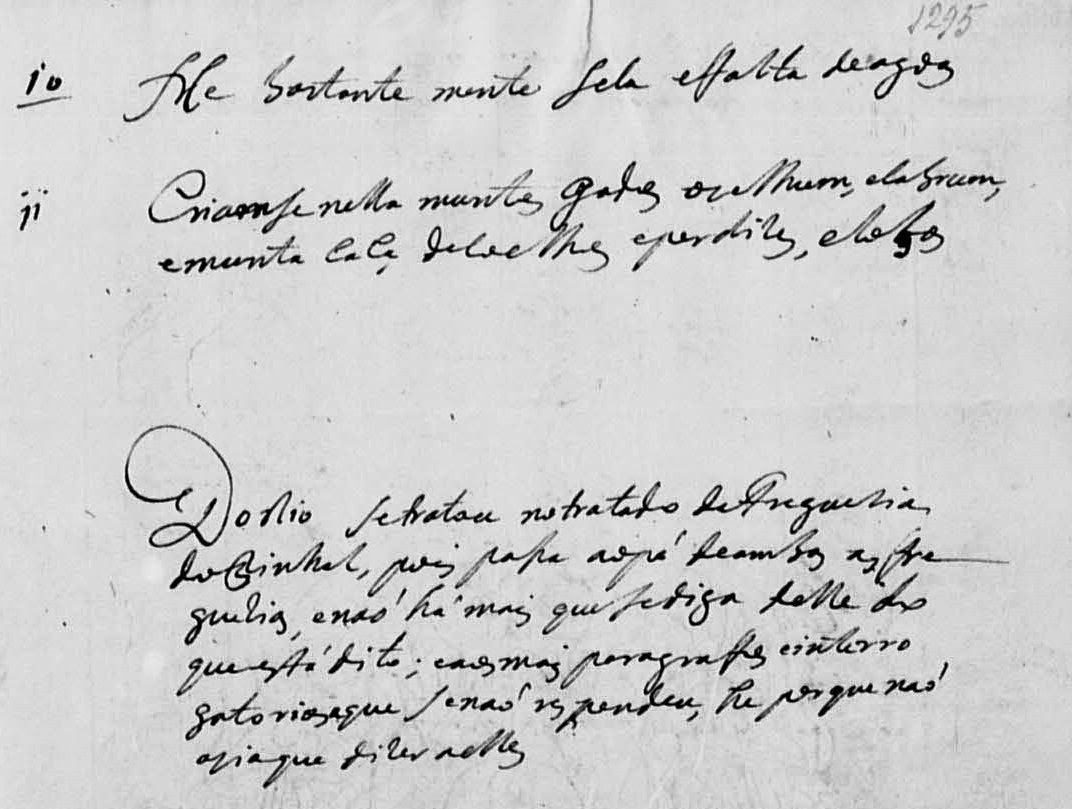 1295
10 He bastante mente seca e falta de agoa
11 Criamse nella muntos gados ovelhum, e cabrum,
e munta caça de coelhos e perdizes, e lobos
Do Rio se tratou no tratado da Freguezia
do Pinhel, pois passa ao pé de ambas as fre
guezias, e naó há mais que se diga delle do
que está dito; e aos mais paragraffos e interro
gatorios a que se naó respondeu, he porque naó
avia que dizer nelles